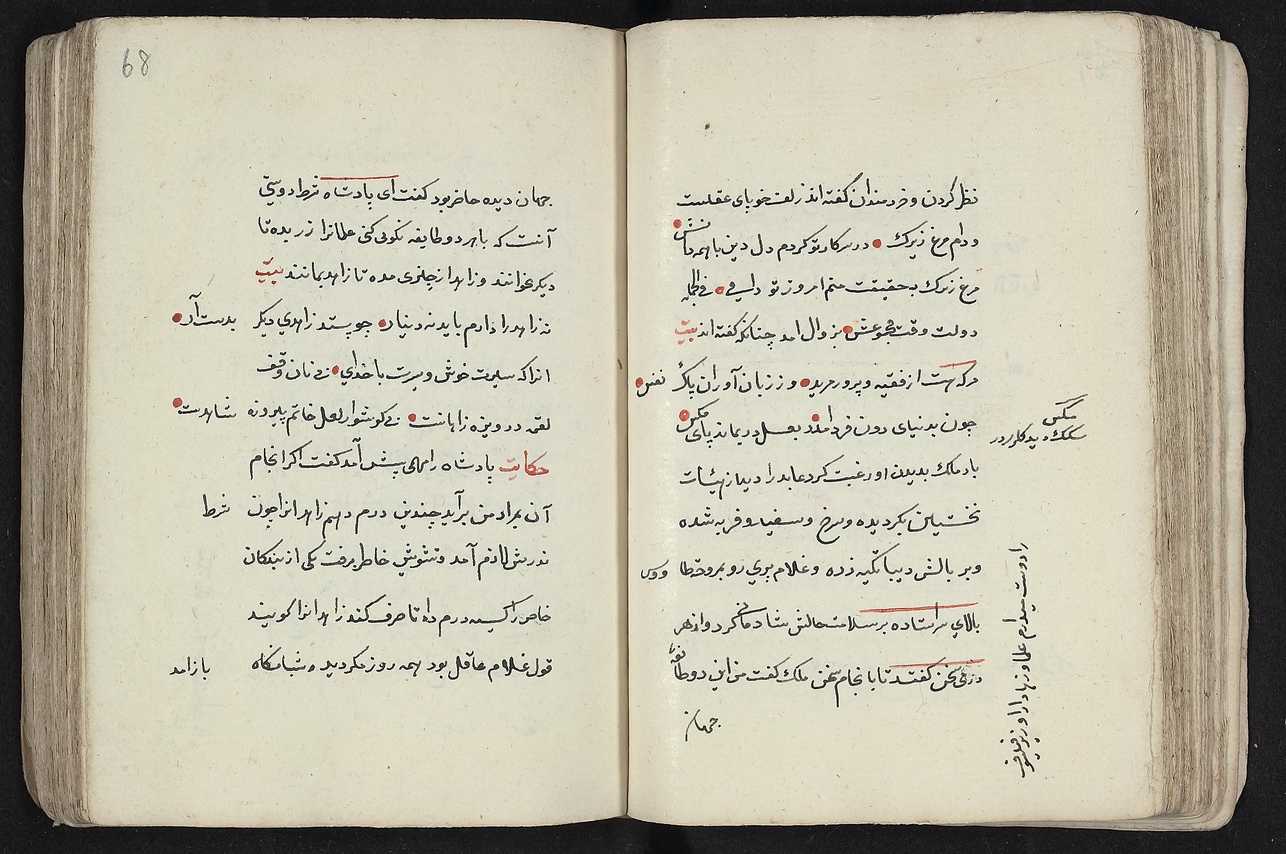 نظر کردن و خردمندان گفته اند زلف خوبان پای عقلست
و دام مرغ زیرک در سر کار تو کردم دل دین با همه دانش
مرغ زیرک بحقیقت منم امروز تو دامی فی الجمله
دولت وقت مجموعش بزوال امد چنانکه گفته اند بیت
هر که هست از فقیه و پیر و مرید وز زبان آوران پاک نفس
چون بدنیای دون فرود امد بعسل در بماند پای مکس
بار ملک بدیدن او رغبت کرد عابد را دید از هیئات
نخستین بگردیده و سرخ و سفید و فربه شده
و بر بالش دیبا تکیه زده و غلام پری رو بمروحه طاووس
بالای سر استاده بر سلامت حالش شادمانی کرد و از هر
دری سخن گفتند تا بانجام سخن ملک گفت من این دو طائفه
جهان
مگس
را دوست میدارم علما و زهاد را وزیر فیلسوف
68
جهان دیده حاضر بود گفت ای پادشاه شرط دوستی
آنست که با هر دو طایفه نکویی کنی علما را زر بده تا
دیگر بخوانند و زاهد را چیزی مده تا زاهد بمانند بیت
نه زاهد را درم باید نه دینار چو بستد زاهدی دیگر بدست آر
انرا که سیرت خوش و سریست با خدای بی نان وقف
لقمه دریوزه زاهد است نی گوشوار لعل خاتم پیروزه شاهدست
حکایت پادشاه را مهمی پیش آمد گفت اگر انجام
آن بمراد من برآید چندین درم دهم زاهدانرا چون
نذرش لازم آمد و تشویش خاطر برفت یکی از بندگان شرط
خاص را کیسه درم داد تا صرف کند زاهدانرا گویند
قول غلام عاقل بود همه روز بگردید و شبانگاه بازآمد